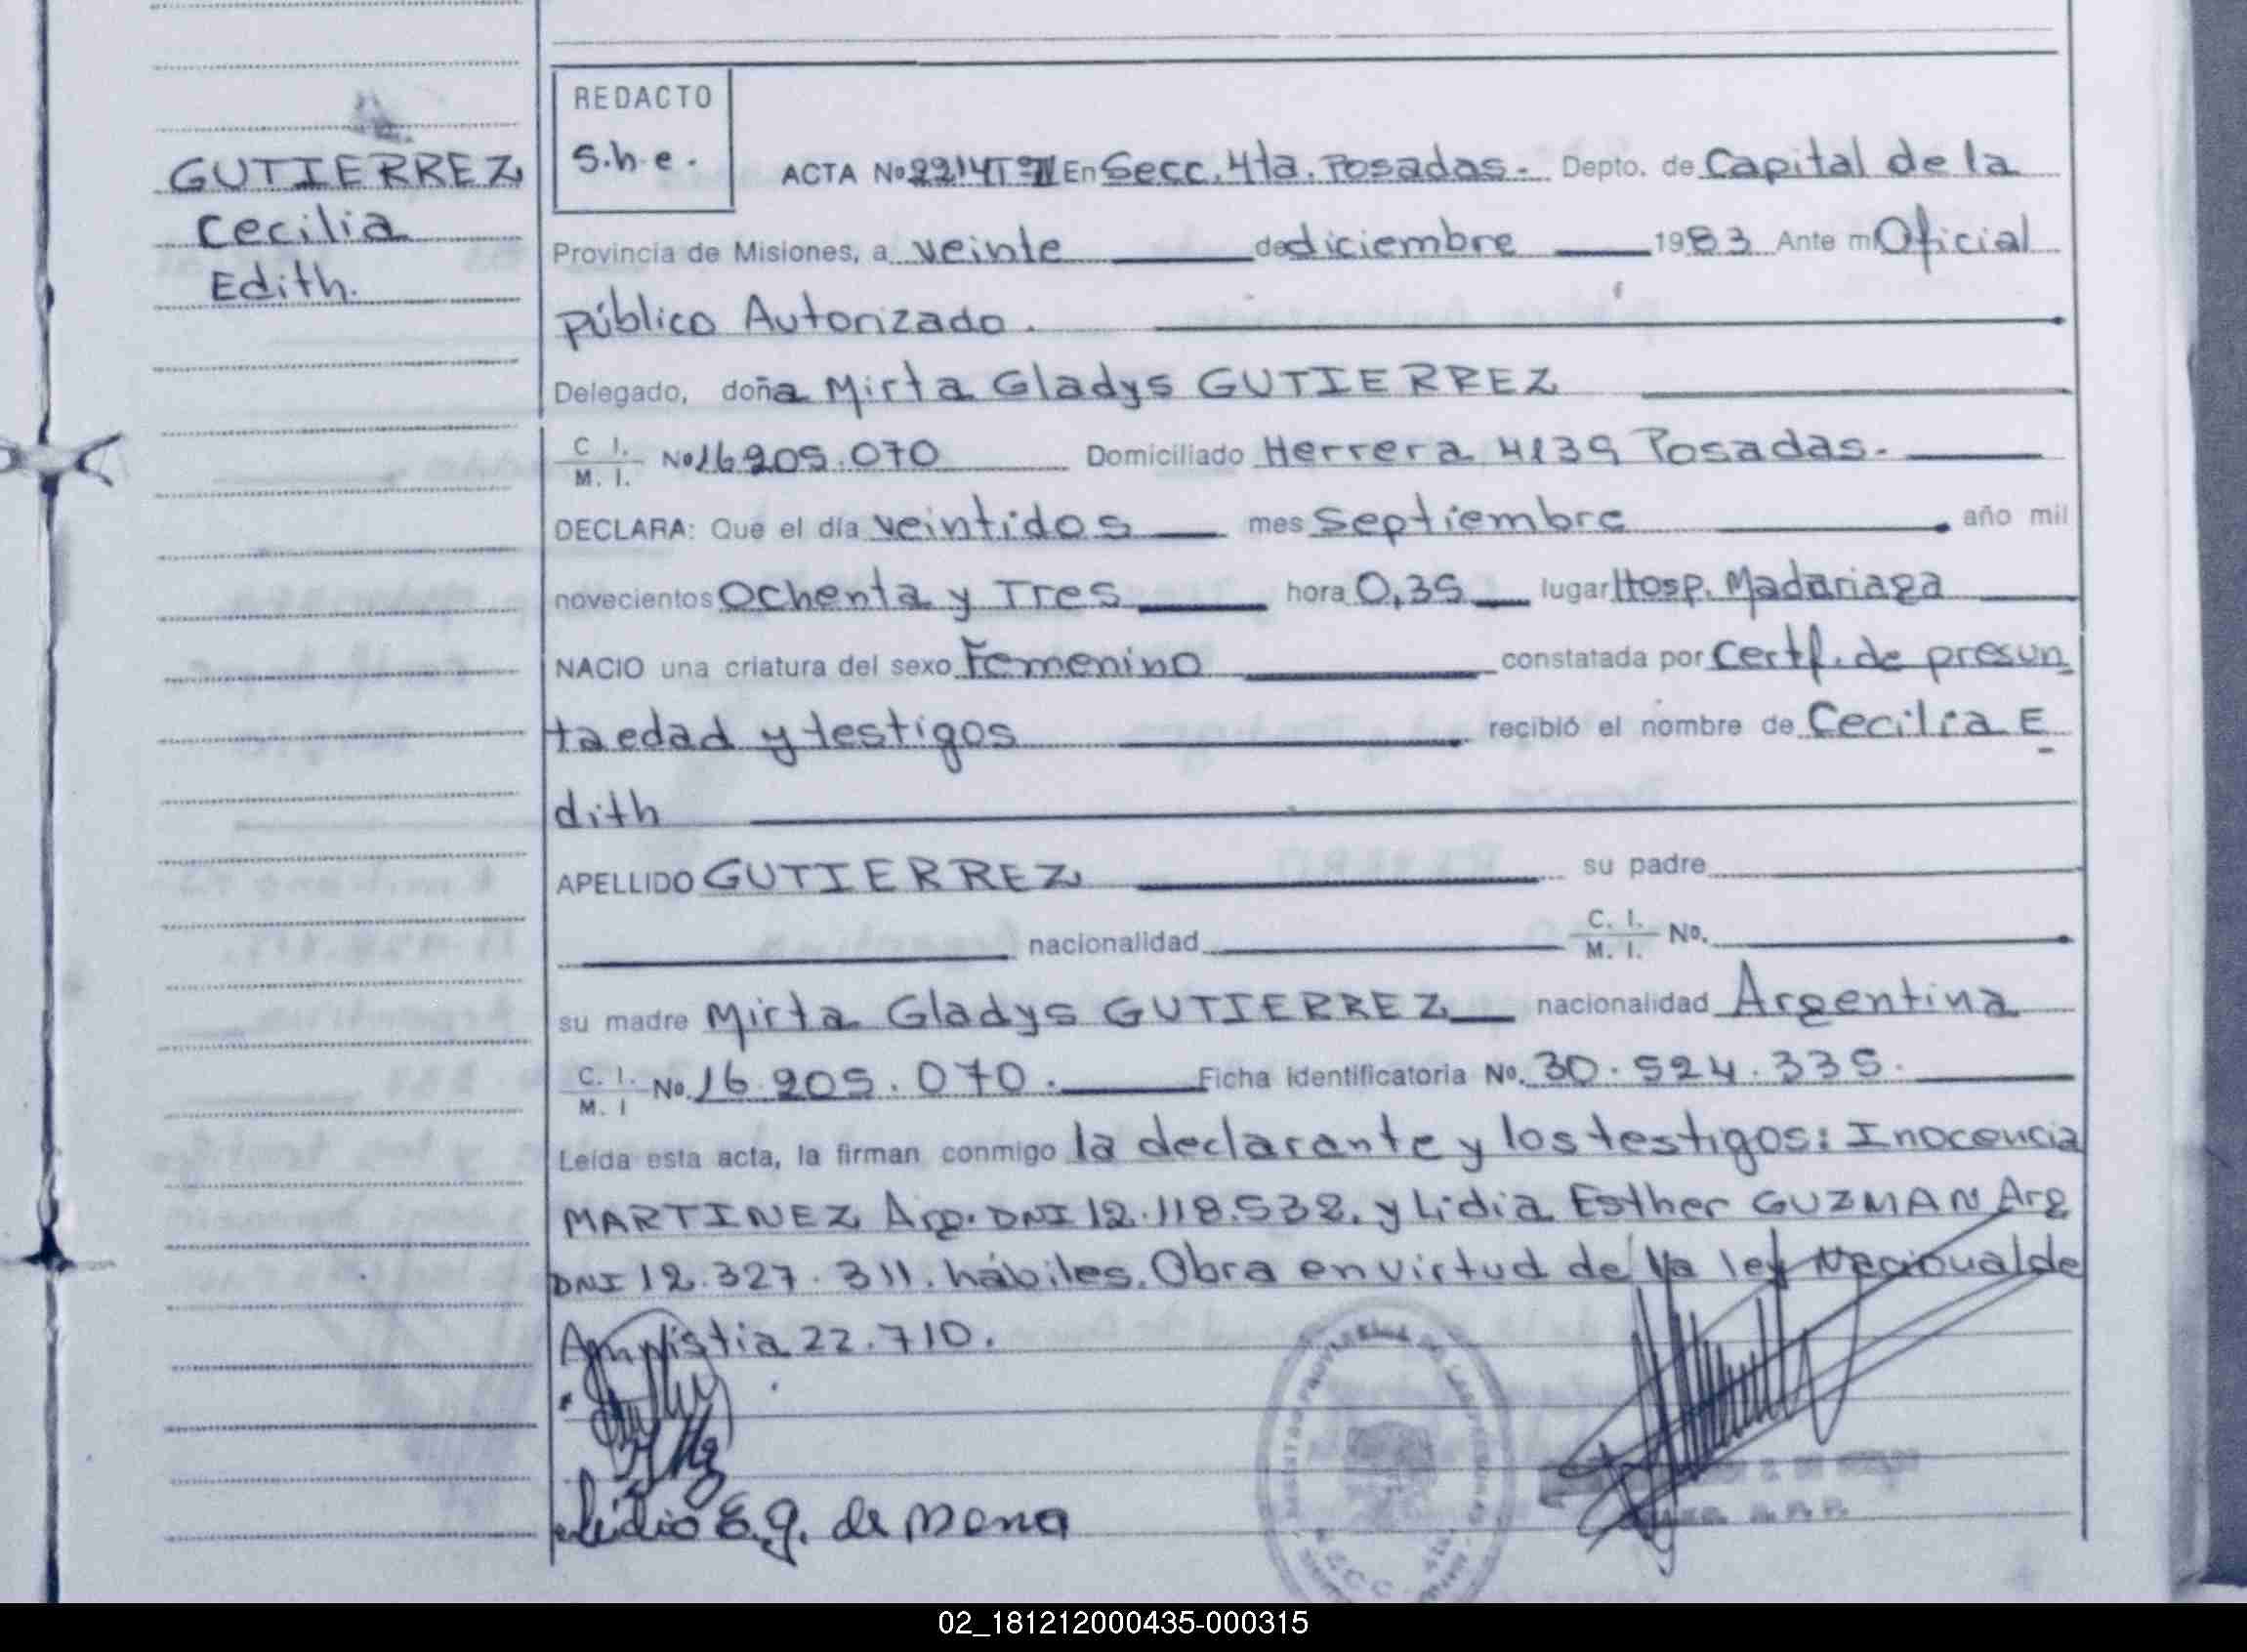 GUTIERREZ
Cecilia
Edith.
REDACTO
S.h.e.
ACTA Nº 2214T°II En Secc. 4ta. Posadas.- Depto. de Capital de la
Provincia de Misiones, a veinte de diciembre 1983 Ante mi Oficial
público Autorizado.
Delegado, doña Mirta Gladys GUTIERREZ
C. I. / M. I. Nº 16.205.070 Domiciliado Herrera 4139 Posadas.-
DECLARA: Que el día veintidos mes Septiembre año mil
novecientos Ochenta y Tres hora 0,35 lugar Hosp. Madariaga
NACIO una criatura del sexo Femenino constatada por Certf. de presun
ta edad y testigos recibió el nombre de Cecilia E
dith
APELLIDO GUTIERREZ su padre
nacionalidad C. I. / M. I. No.
su madre Mirta Gladys GUTIERREZ nacionalidad Argentina
C. I. / M. I No. 16.205.070. Ficha identificatoria No. 30.524.335.
Leída esta acta, la firman conmigo la declarante y los testigos: Inocencia
MARTINEZ Arg. DNI 12.118.532. y Lidia Esther GUZMAN Arg
DNI 12.327.311. hábiles. Obra en virtud de la ley Nacional de
Amnistia 22.710.
Lidia E. G. de Mena
SECC. 4ta.
02_181212000435-000315